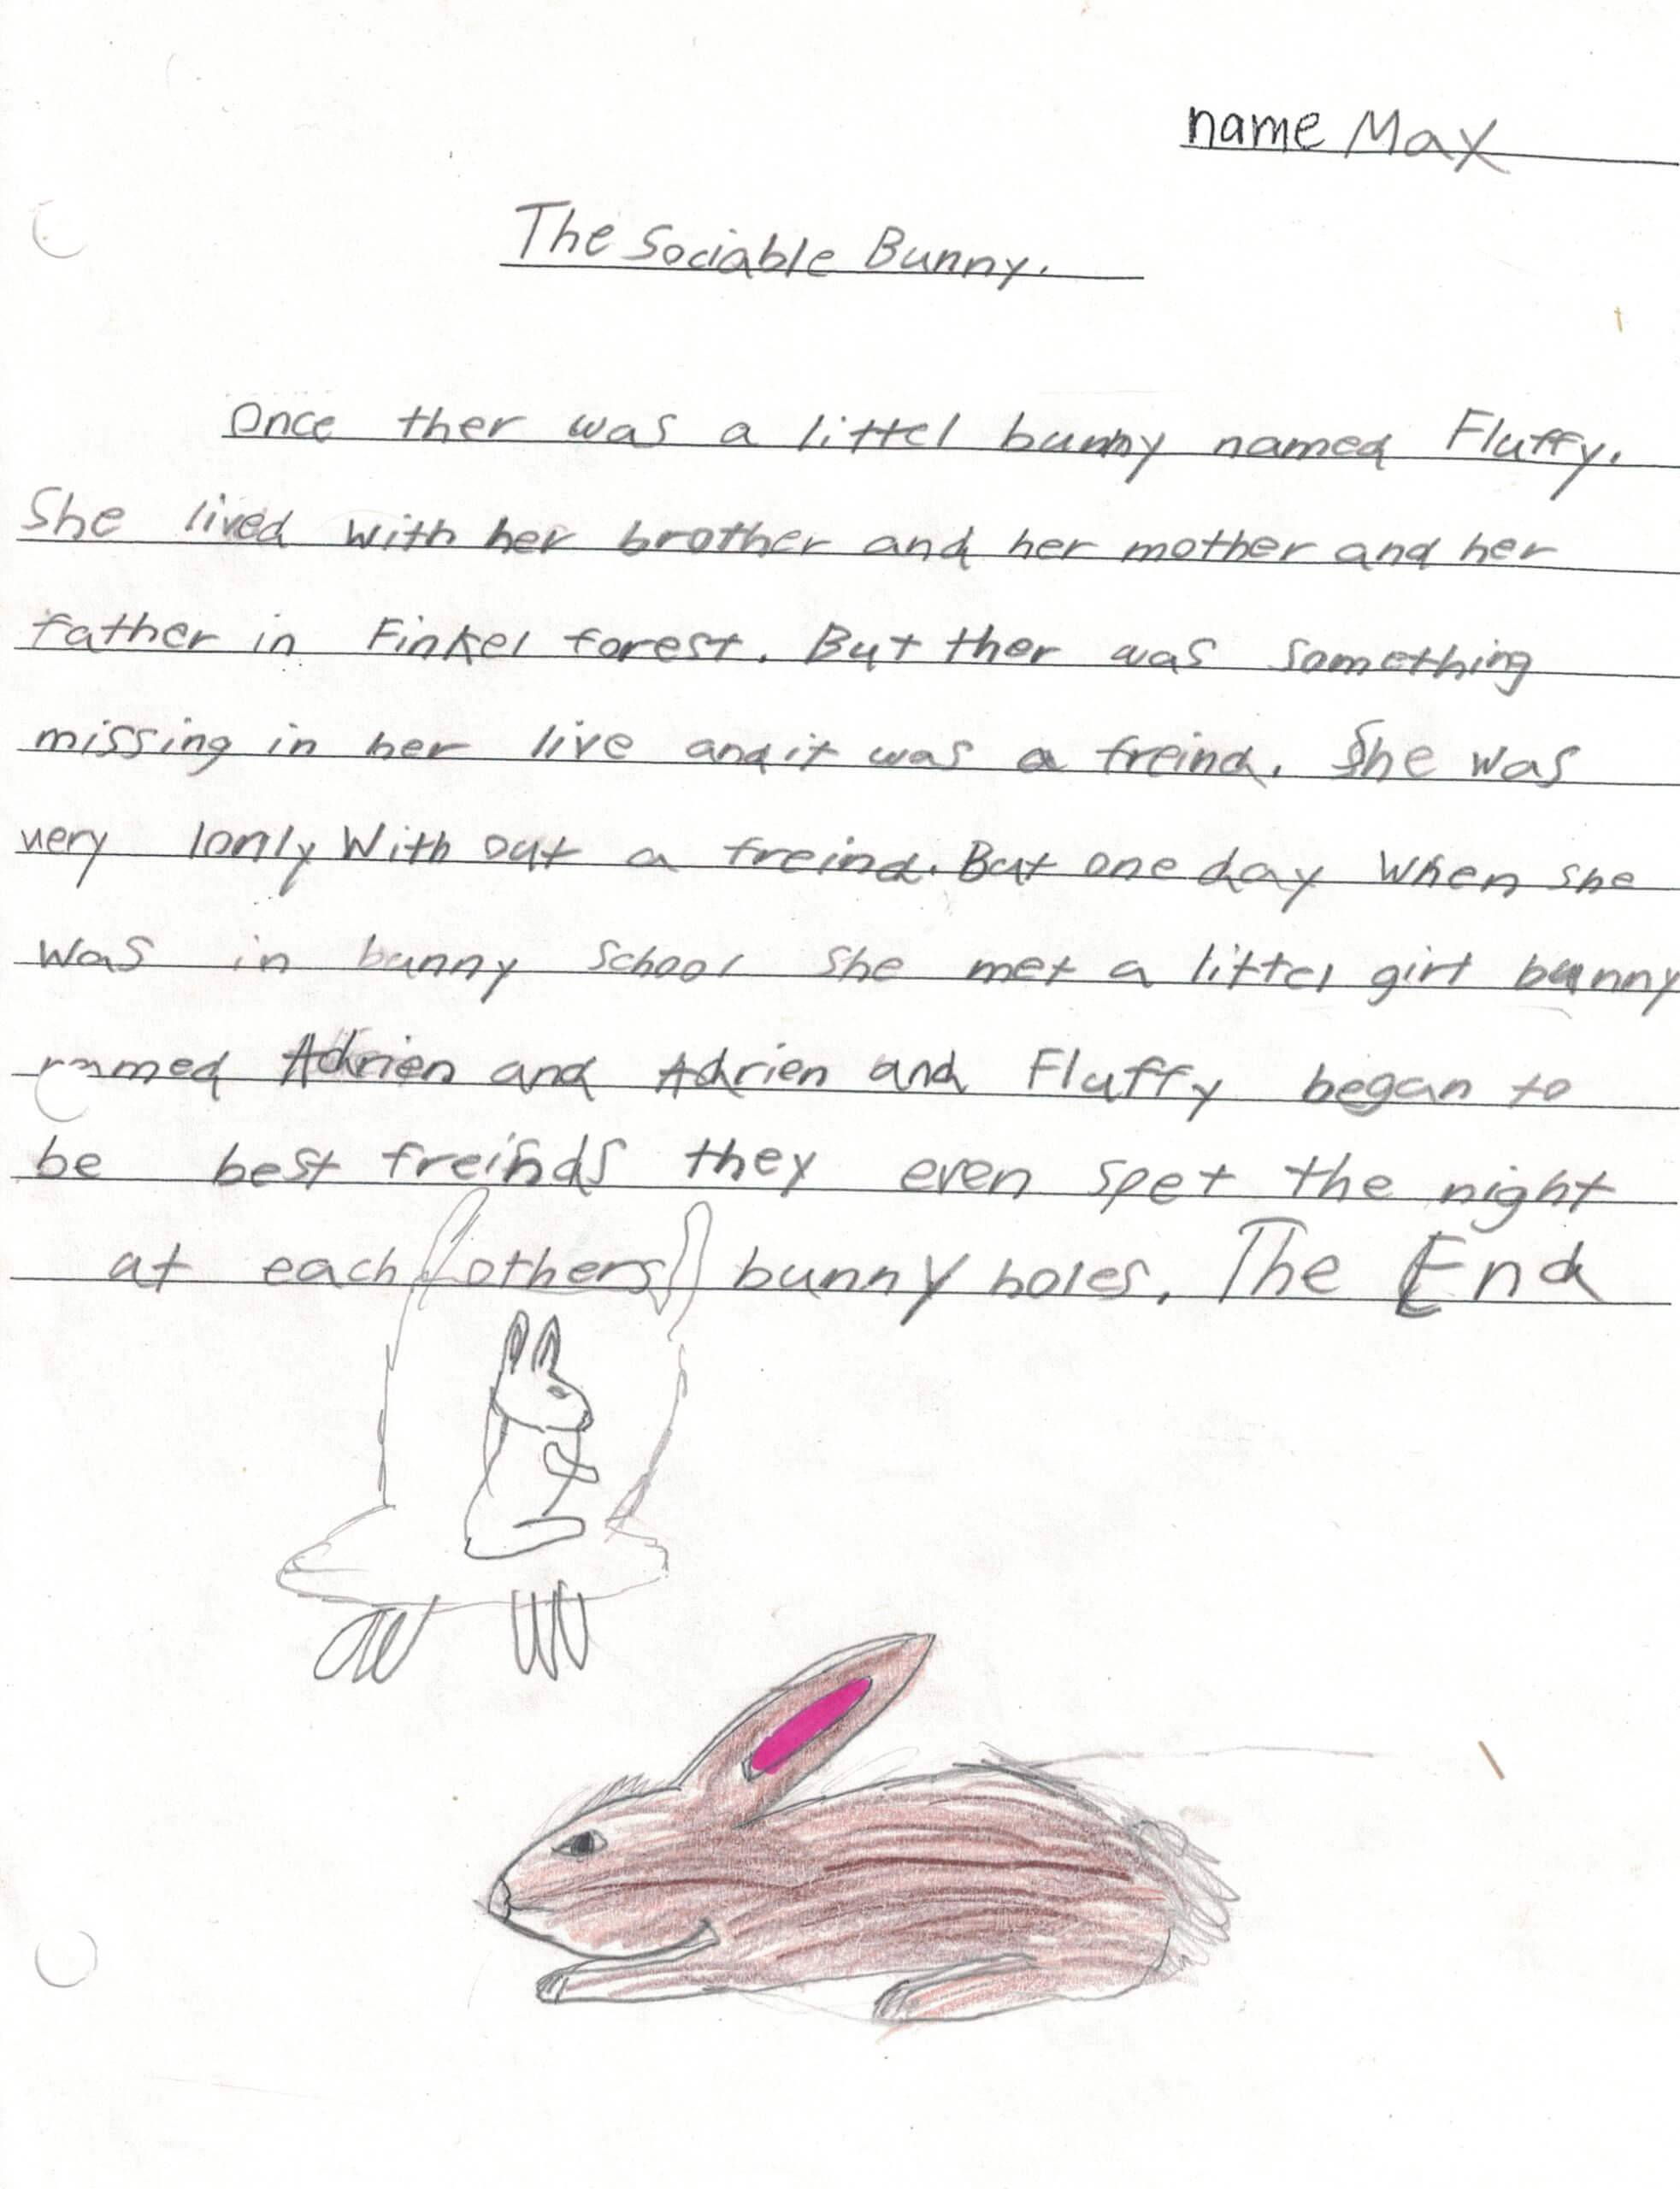 name Max
The Sociable Bunny.
Once ther was a littel bunny named Fluffy.
She lived with her brother and her mother and her
father in Finkel forest. But ther was something
missing in her live and it was a freind. She was
very lonly With out a freind. But one day When she
was in bunny school she met a littel girl bunny
named Adrien and Adrien and Fluffy began to
be best freinds they even spet the night
at each others bunny holes. The End